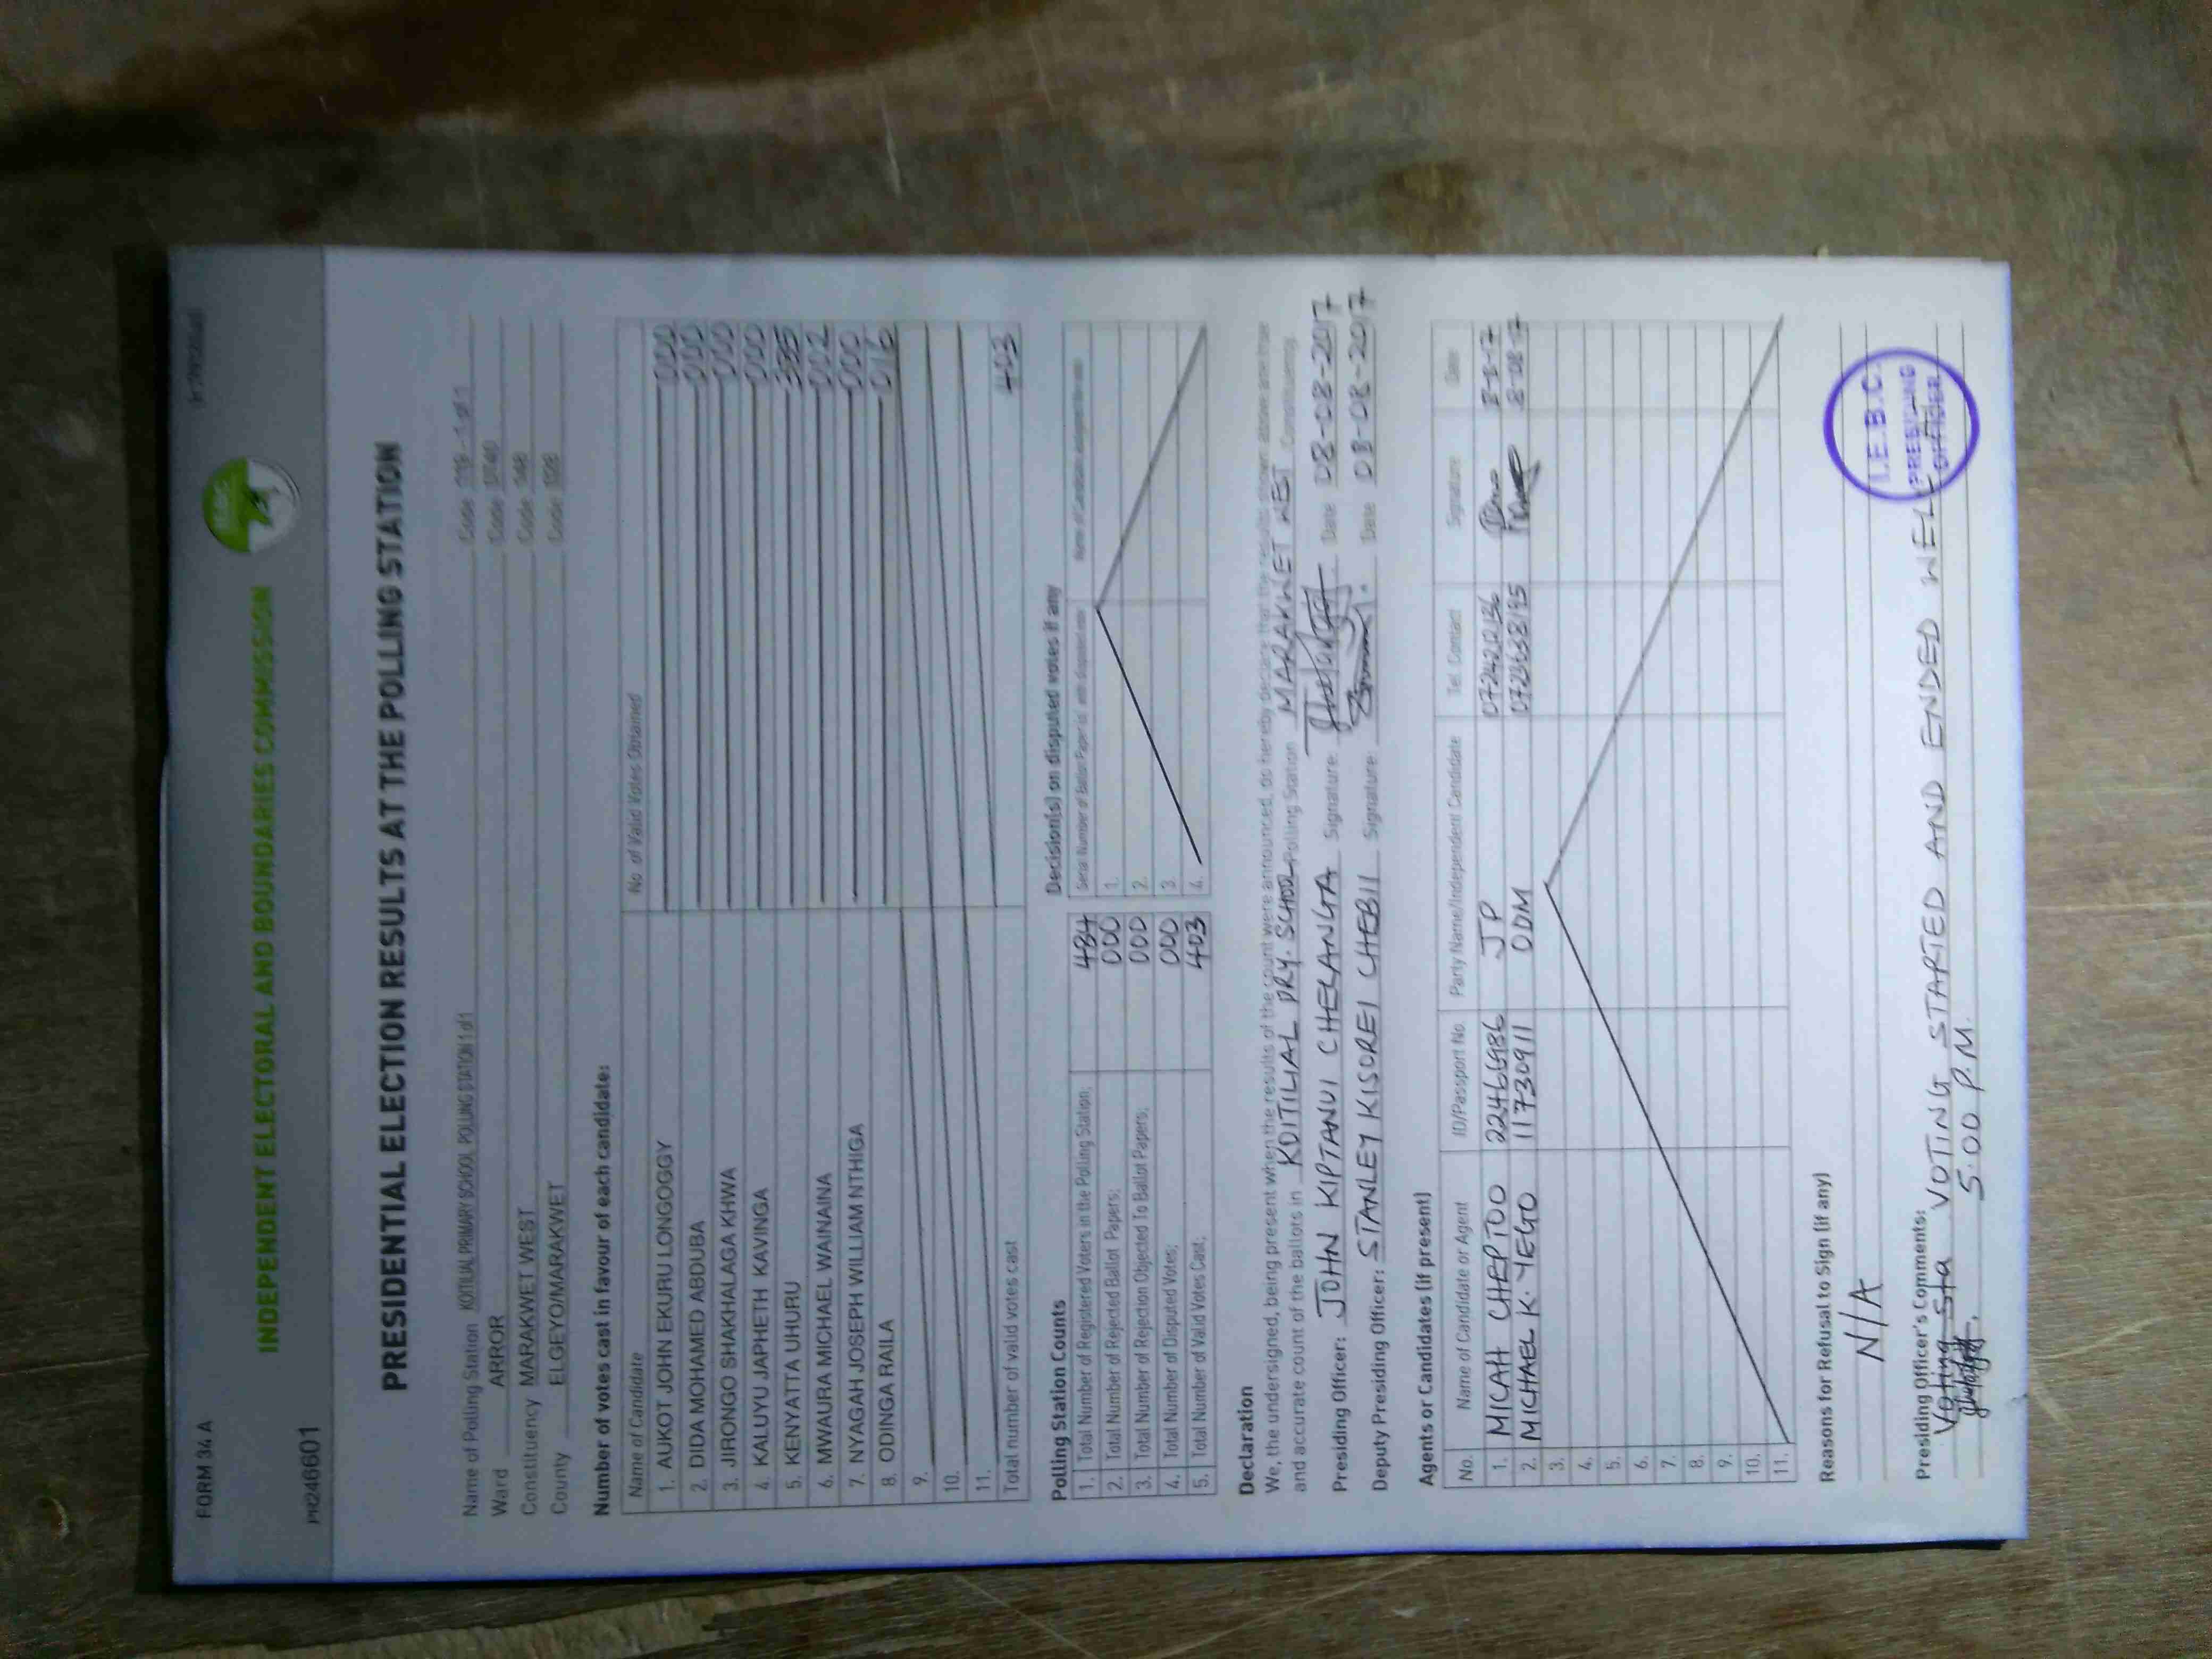 FORM 34 A
INDEPENDENT ELECTORAL AND BOUNDARIES COMMISSION
PR246601
PRESIDENTIAL ELECTION RESULTS AT THE POLLING STATION
Name of Polling Station KOITILIAL PRIMARY SCHOOL POLLING STATION 1 of 1 Code 019 - 1 of 1
Ward ARROR Code
Constituency MARAKWET WEST Code 148
County ELGEYO/MARAKWET Code 028
Number of votes cast in favour of each candidate:
Name of Candidate No of Valid Votes Obtained
1. AUKOT JOHN EKURU LONGOGGY 000
2. DIDA MOHAMED ABDUBA 000
3. JIRONGO SHAKHALAGA KHWA 000
4. KALUYU JAPHETH KAVINGA 000
5. KENYATTA UHURU 385
6. MWAURA MICHAEL WAINAINA 002
7. NYAGAH JOSEPH WILLIAM NTHIGA 000
8. ODINGA RAILA 016
9.
10.
11.
Total number of valid votes cast 403
Polling Station Counts
1. Total Number of Registered Voters in the Polling Station; 484
2. Total Number of Rejected Ballot Papers; 000
3. Total Number of Rejection Objected To Ballot Papers; 000
4. Total Number of Disputed Votes; 000
5. Total Number of Valid Votes Cast; 403
Decision(s) on disputed votes if any
Serial Number of Ballot Paper(s) with disputed vote Name of Candidate assigned the vote
1.
2.
3.
4.
Declaration
We, the undersigned, being present when the results of the count were announced, do hereby declare that the results shown above are true
and accurate count of the ballots in KOITILIAL PRY. SCHOOL Polling Station MARAKWET WEST Constituency.
Presiding Officer: JOHN KIPTANUI CHELANGA Signature: Date 08-08-2017
Deputy Presiding Officer: STANLEY KISOREI CHEBII Signature: Date 08-08-2017
Agents or Candidates (if present)
No. Name of Candidate or Agent ID/Passport No Party Name/Independent Candidate Tel. Contact Signature Date
1. MICAH CHEPTOO 22466986 JP 8-8-17
2. MICHAEL K. YEGO 11730911 ODM 8-08-17
3.
4.
5.
6.
7.
8.
9.
10.
11.
Reasons for Refusal to Sign (if any)
N/A
Presiding Officer's Comments:
Voting sta VOTING STARTED AND ENDED WELL AT
5.00 P.M.
I.E.B.C.
PRESIDING
OFFICER